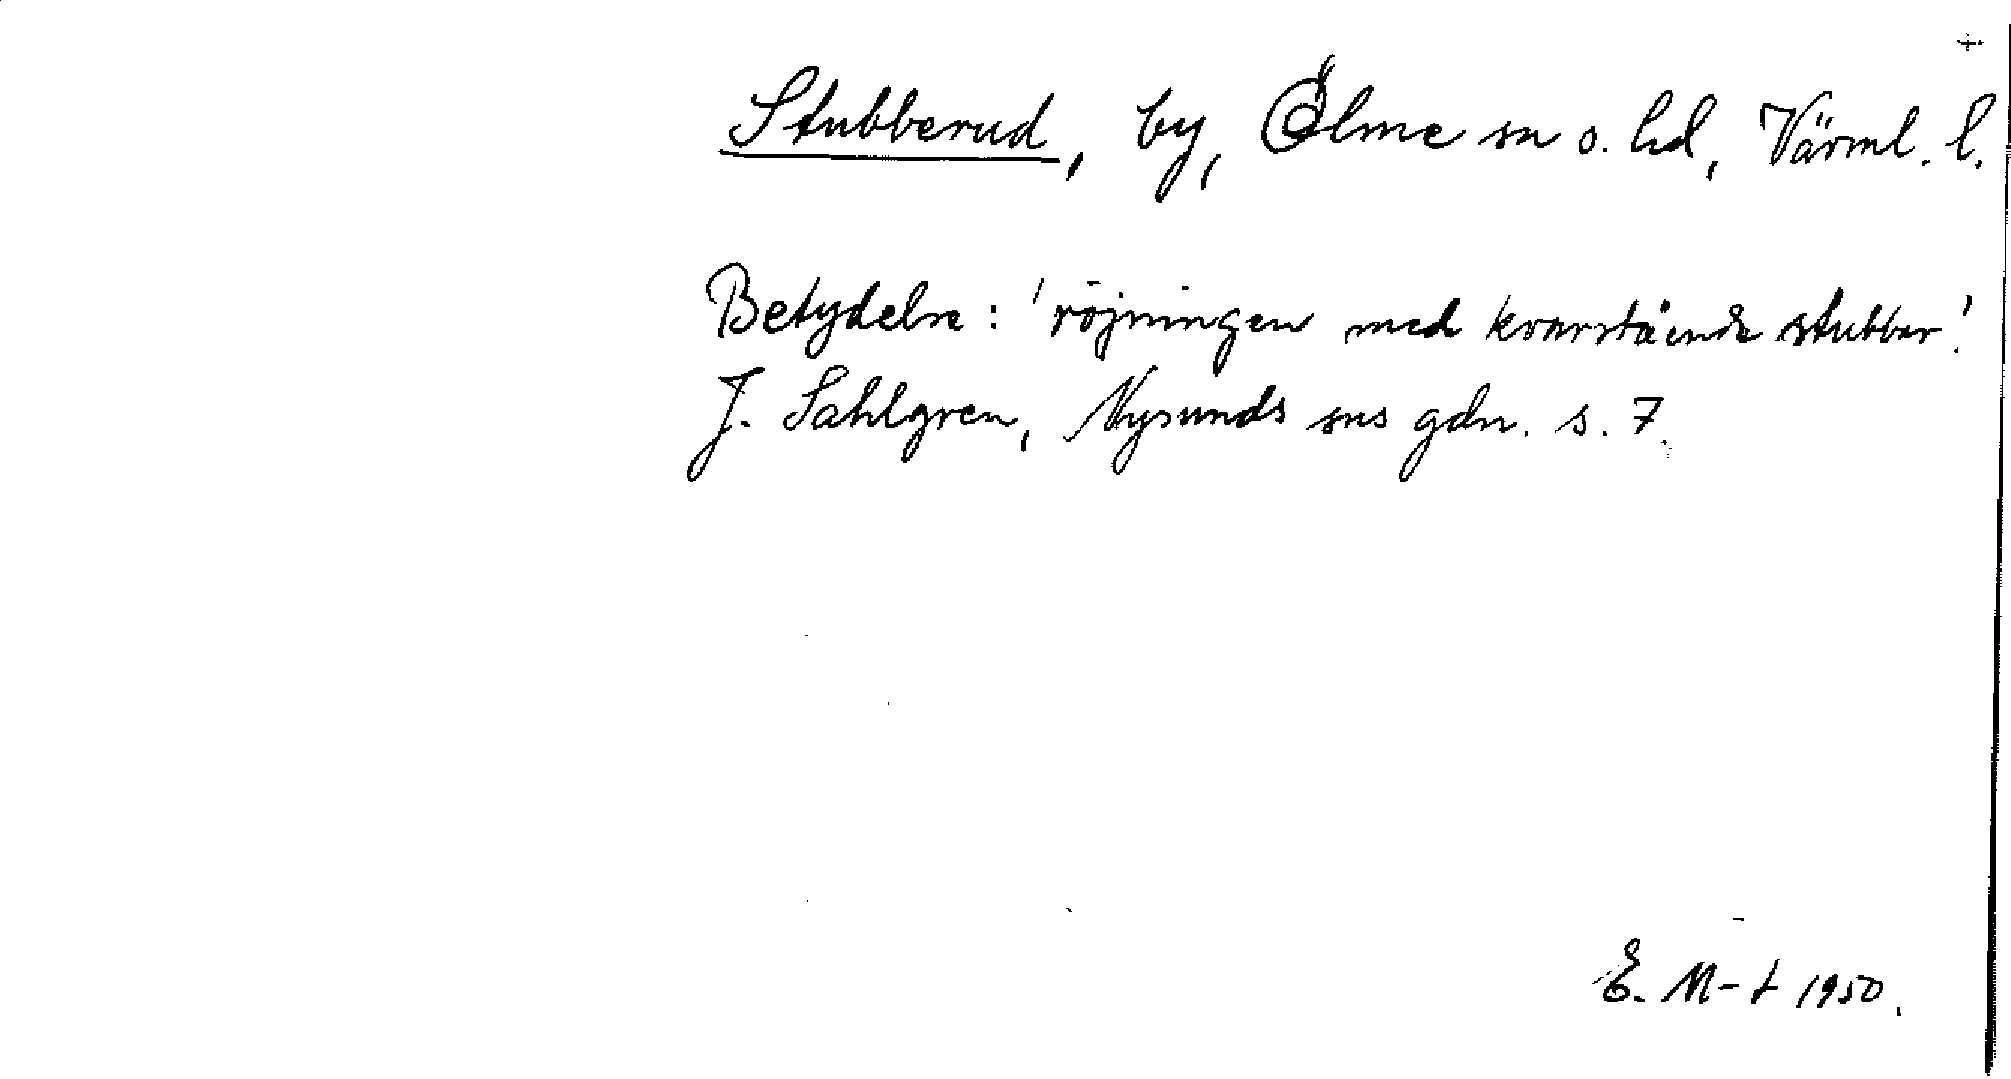 Stubberud, by, Ölme sn o. hd, Värml. l.
Betydelse: 'röjningen med kvarstående stubbar'.
J. Sahlgren, Nysunds sns gdn. s. 7.
E. M-t 1950.